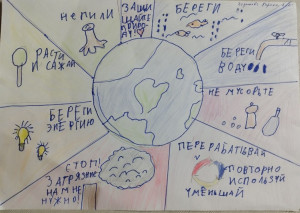 НЕ ПИЛИ
ЗАЩИ
ЩАЙТЕ
ПРИРО
ДУ!
БЕРЕГИ
БЕРЕГИ
ВОДУ
НЕ МУСОРЬТЕ
ПЕРЕРАБАТЫВАЙ
ПОВТОРНО
ИСПОЛЬЗУЙ
УМЕНЬШАЙ
СТОП!
ЗАГРЯЗНЕНИЕ
НАМ НЕ
НУЖНО!
БЕРЕГИ
ЭНЕРГИЮ
РАСТИ
И САЖАЙ